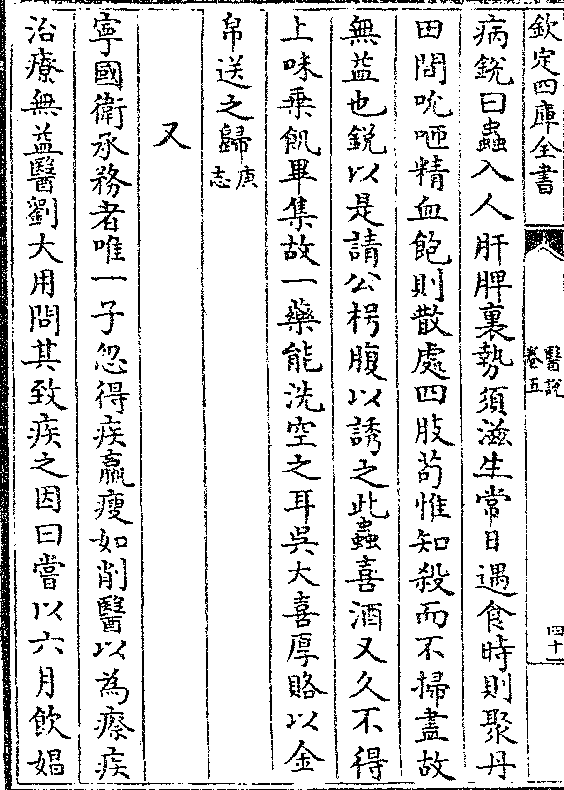 欽定四庫全書
醫說
卷五
四十一
病銳曰蟲入人肝脾裏勢須滋生常日遇食時則聚丹
田間吮咂精血飽則散處四肢苟惟知殺而不掃盡故
無益也銳以是請公枵腹以誘之此蟲喜酒又久不得
上味乘飢畢集故一藥能洗空之耳吳大喜厚賂以金
帛送之歸庚志
又
寧國衛承務者唯一子忽得疾羸瘦如削醫以為瘵疾
治療無益醫劉大用問其致疾之因曰嘗以六月飲娼